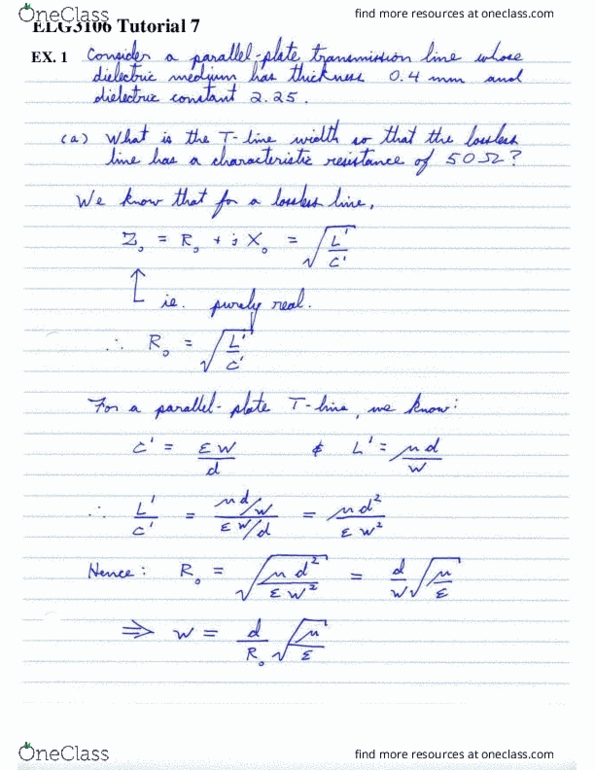 OneClass
find more resources at oneclass.com
ELG3106 Tutorial 7
EX. 1 Consider a parallel-plate transmission line whose
dielectric medium has thickness 0.4 mm and
dielectric constant 2.25.
(a) What is the T-line width so that the lossless
line has a characteristic resistance of 50Ω?
We know that for a lossless line,
Z₀ = R₀ + j X₀ = √(L'/C')
↑ ie. purely real.
∴ R₀ = √(L'/C')
For a parallel-plate T-line, we know:
C' = εw/d & L' = μd/w
∴ L'/C' = (μd/w)/(εw/d) = μd²/εw²
Hence: R₀ = √(μd²/εw²) = d/w √(μ/ε)
⇒ w = d/R₀ √(μ/ε)
OneClass
find more resources at oneclass.com